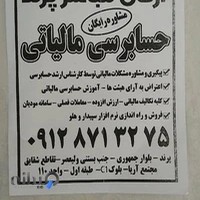 مشاوره رایگان
حسابرسی مالیاتی
پیگیری و مشاوره مشکلات مالیاتی توسط کارشناس ارشد حسابرسی
اعتراض به آرای هیئت ها - آموزش حسابرسی مالیاتی
کلیه تکالیف مالیاتی - ارزش افزوده - معاملات فصلی - سامانه مودیان
فروش و راه اندازی نرم افزار سپیدار و هلو
۰۹۱۲ ۸۷۱ ۳۲ ۷۵
پرند - بلوار جمهوری - جنب بستنی ولیعصر - تقاطع شقایق
مجتمع آریا - بلوک C1 - طبقه اول - واحد ۱۱۰